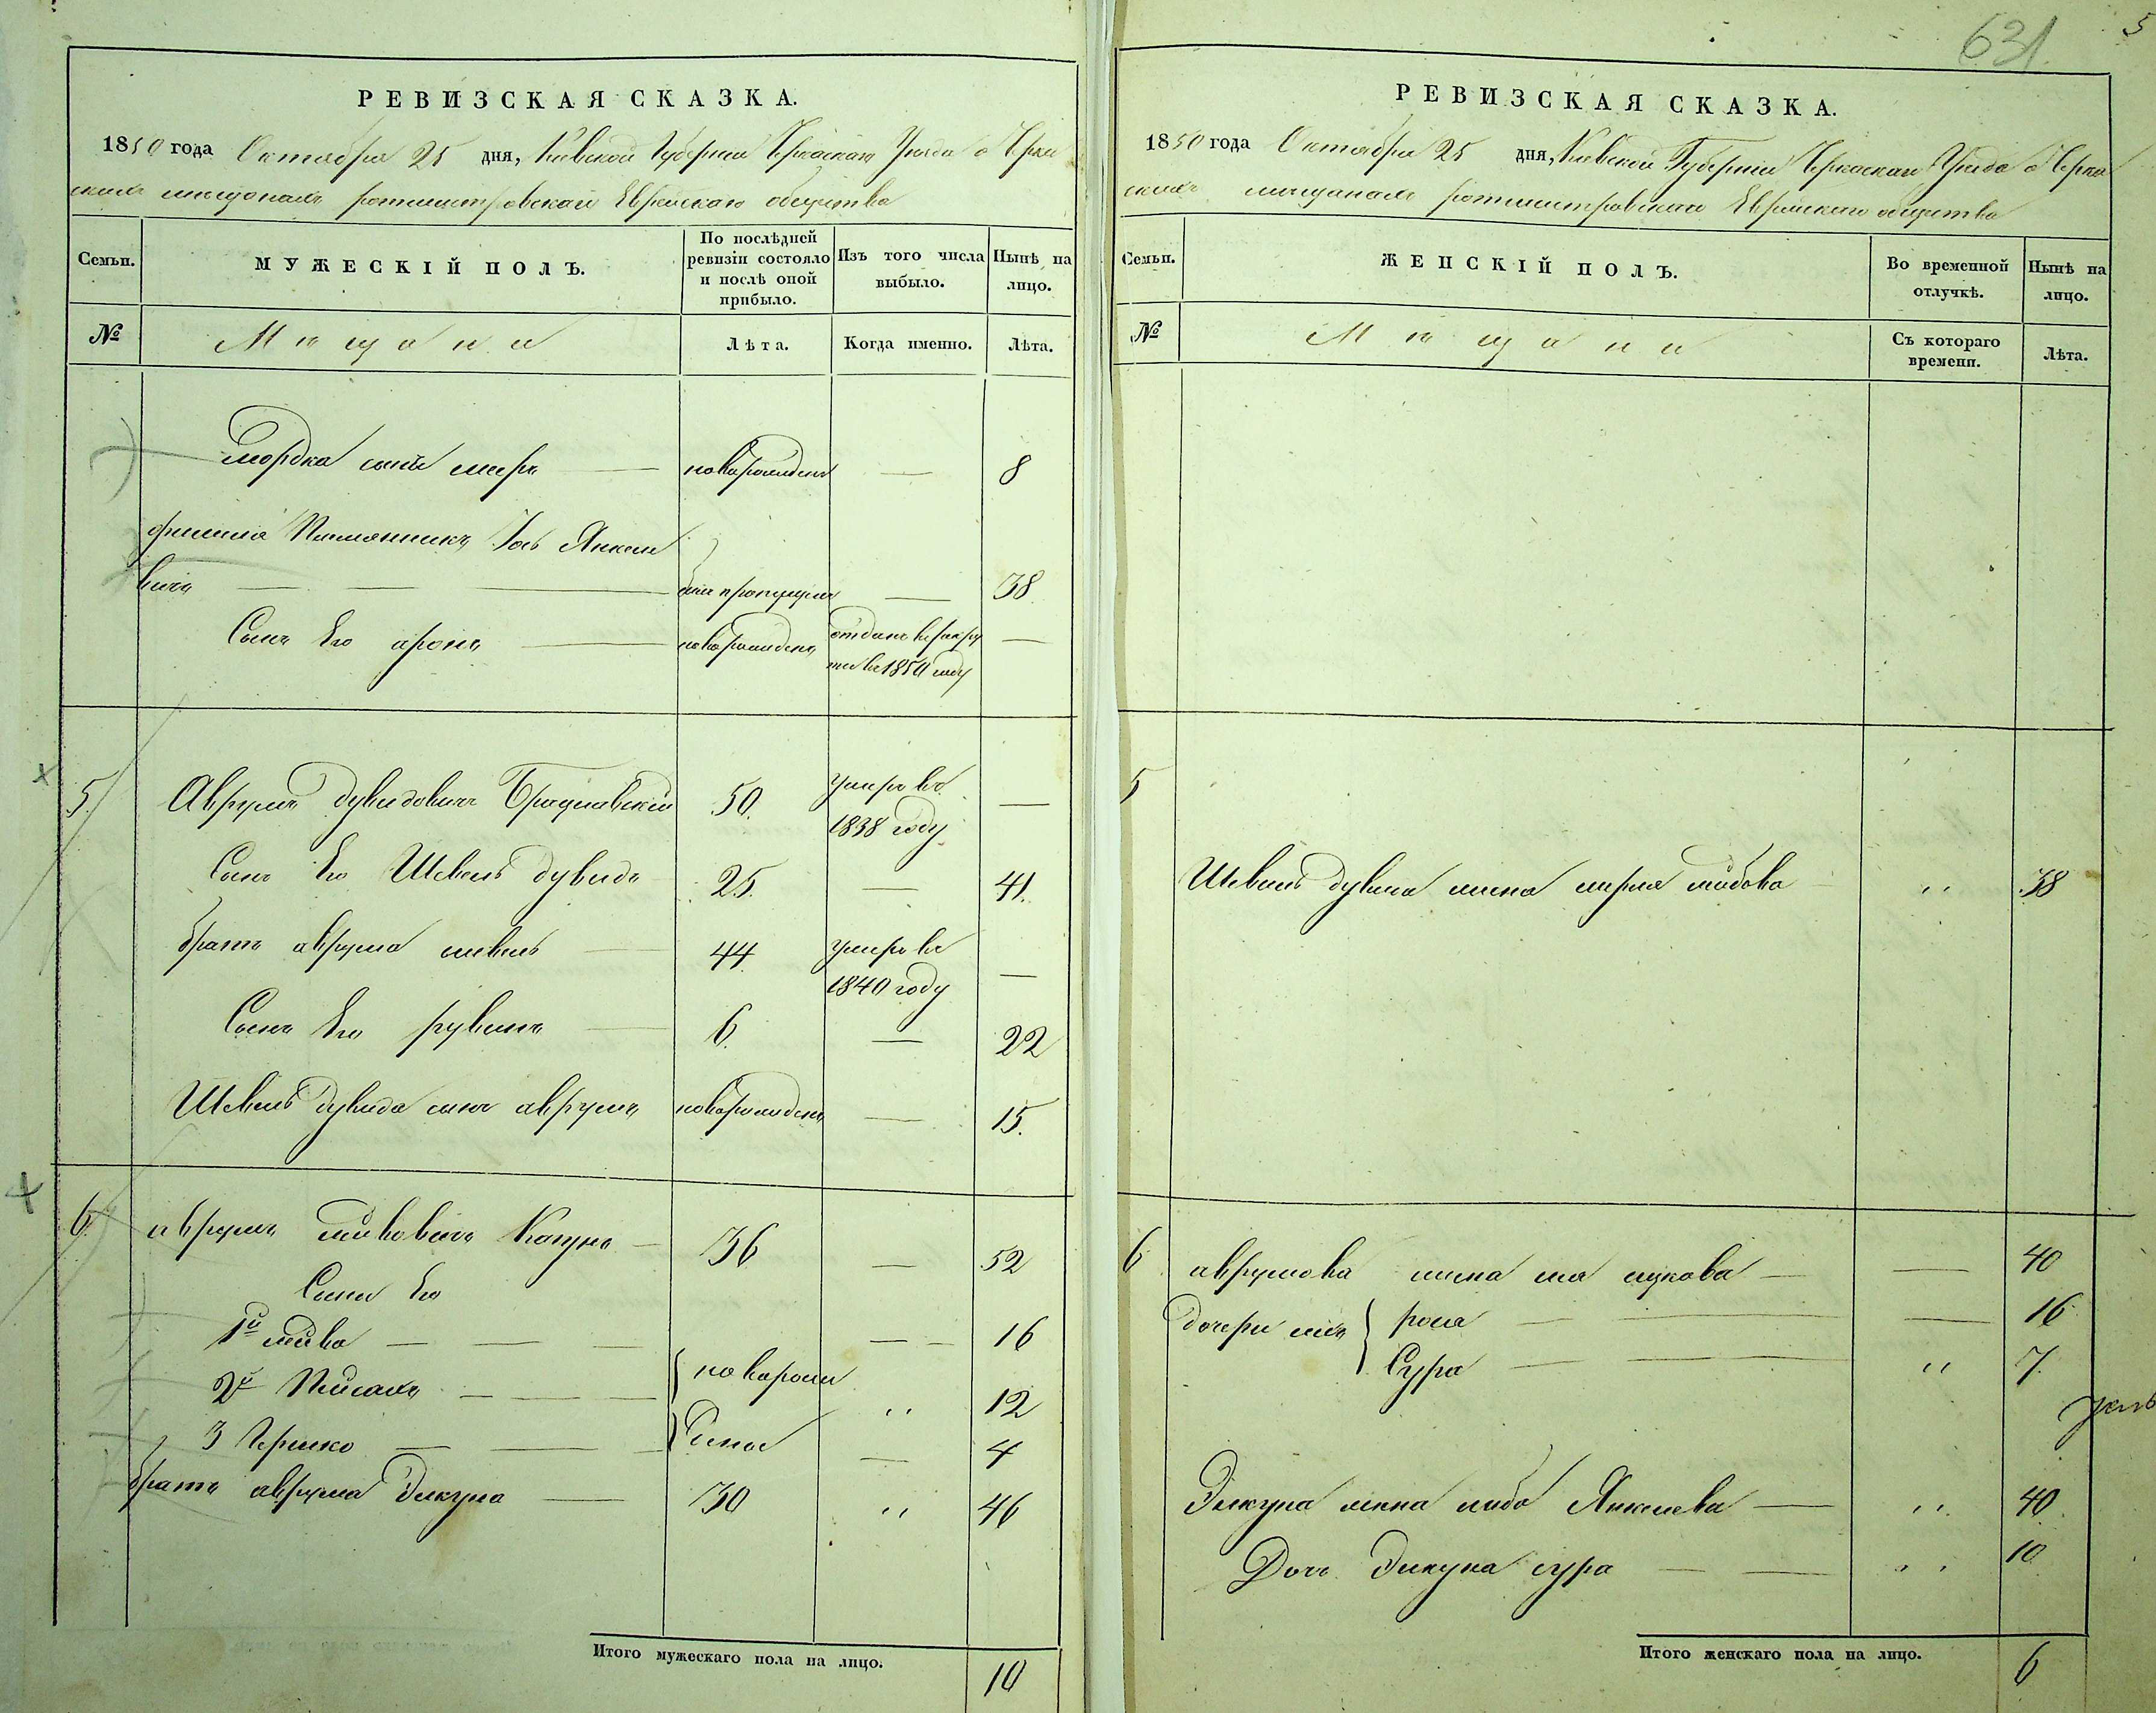 631.
5
РЕВИЗСКАЯ СКАЗКА.
1850 года Октября 25 дня, Кіевской Губерніи Черкаскаго Уезда о Черка
скихъ мещанахъ ротмистровскаго Еврейскаго общества
Семьи. МУЖЕСКІЙ ПОЛЪ. По послѣдней ревизіи состояло и послѣ оной прибыло. Изъ того числа выбыло. Нынѣ на лицо.
№ Мещане Лѣта. Когда именно. Лѣта.
Мордка сынъ новорожденъ — 8
Племянникъ Іось Янкеле
вичъ — пропущенъ — 38
Сынъ Его аронъ — новорожденъ отданъ въ рекру
ты въ 1850 году —
5. Аврумъ дувидовичъ Брацлавскій 50. умеръ въ
1838 году —
Сынъ Его Шевель дувидъ 25. — 41.
братъ аврума шевель — 44 умеръ въ
1840 году —
Сынъ Его рувинъ — 6. — 22
Шевель дувида сынъ аврумъ новорожденъ — 15.
6. аврумъ Кацунъ — 36 — 52
Сыны Его
1й — — 16
2й Пейсахъ — новорож „ 12
3 Гершко — дены — 4
братъ аврума Элкуна — 30 „ 46
Итого мужескаго пола на лицо. 10
РЕВИЗСКАЯ СКАЗКА.
1850 года Октября 25 дня, Кіевской Губерніи Черкаскаго Уезда о Черка
скихъ мещанахъ ротмистровскаго Еврейскаго общества
Семьи. ЖЕНСКІЙ ПОЛЪ. Во временной отлучкѣ. Нынѣ на лицо.
№ Мещане Съ котораго времени. Лѣта.
5
Шевель дувида жена „ 38
6 аврумова жена — — 40
дочери — — 16
Сура — „ 7.
Элкуна жена либа Янкелева — „ 40
Дочь Элкуна сура — „ 10
Итого женскаго пола на лицо. 6